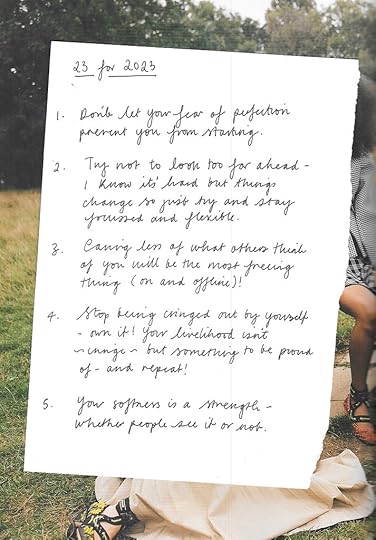 23 for 2023
1. Don't let your fear of perfection
prevent you from starting.
2. Try not to look too far ahead -
I know it's hard but things
change so just try and stay
focussed and flexible.
3. Caring less of what others think
of you will be the most freeing
thing (on and offline)!
4. Stop being cringed out by yourself
- own it! Your livelihood isn't
~cringe~ but something to be proud
of - and repeat!
5. Your softness is a strength -
whether people see it or not.